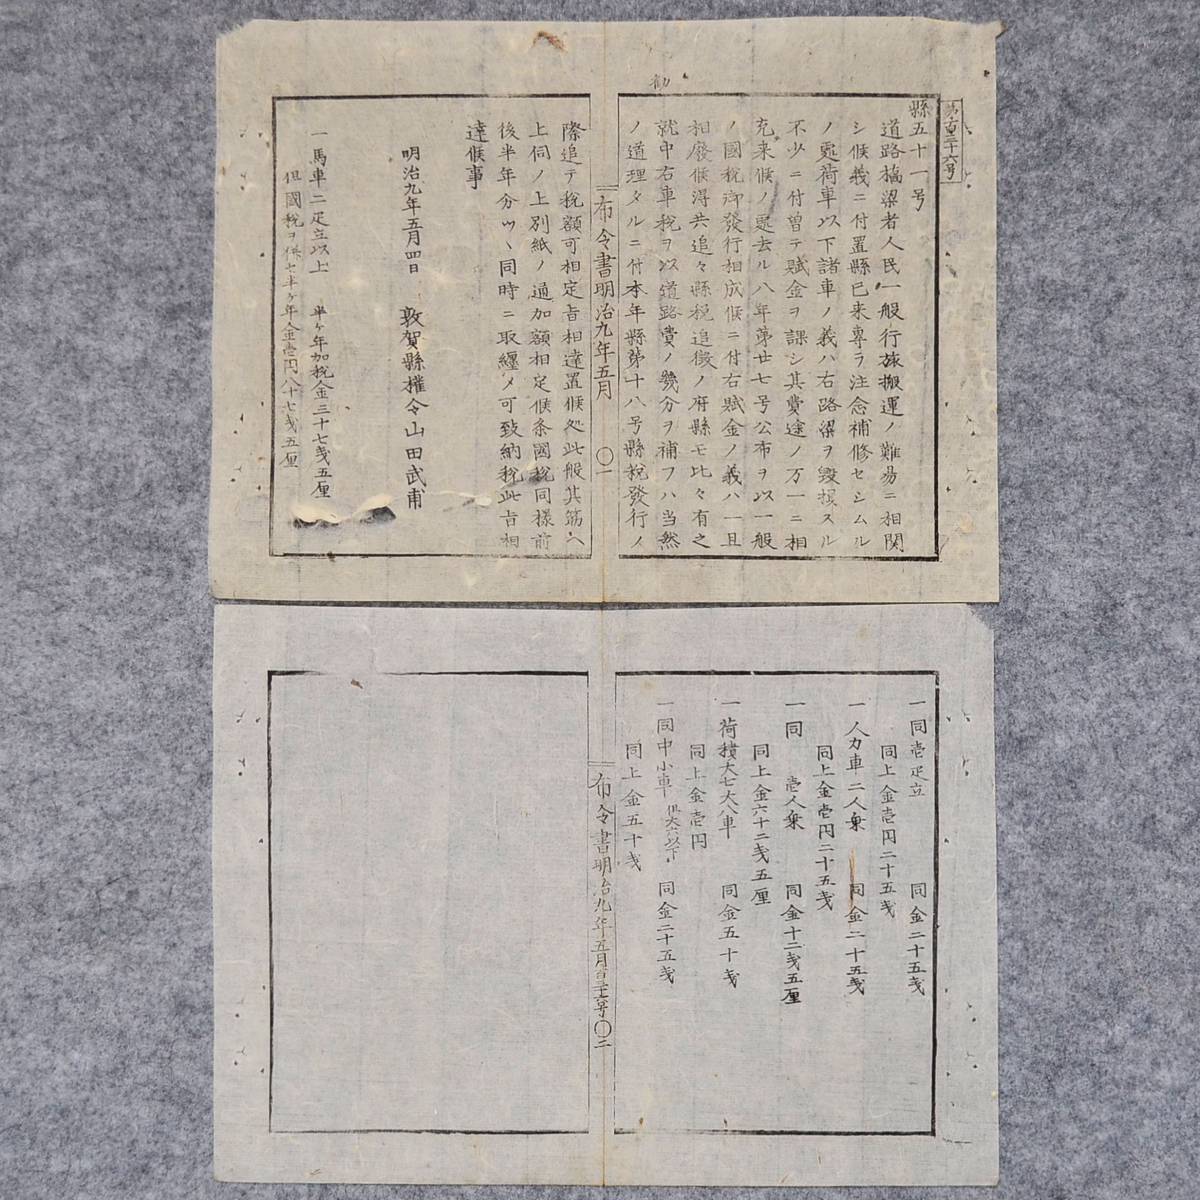 第百三十六号
勧
縣五十一号
道路橋梁者人民一般行旅搬運ノ難易ニ相関
シ候義ニ付置縣已来專ラ注念補修セシムル
ノ處荷車以下諸車ノ義ハ右路梁ヲ毀損スル
不少ニ付曽テ賦金ヲ課シ其費途ノ万一ニ相
充来候ノ處去ル八年第廿七号公布ヲ以一般
ノ國税御發行相成候ニ付右賦金ノ義ハ一且
相廢候得共追々縣税追徴ノ府縣モ比々有之
就中右車税ヲ以道路費ノ幾分ヲ補フハ当然
ノ道理タルニ付本年縣第十八号縣税發行ノ
布令書明治九年五月 〇一
際追テ税額可相定旨相達置候処此般其筋ヘ
上伺ノ上別紙ノ通加額相定候条國税同様前
後半年分ツヽ同時ニ取纏メ可致納税此旨相
達候事
明治九年五月四日 敦賀縣權令山田武甫
一馬車二疋立以上 半ヶ年加税金三十七戔五厘
但國税ヲ併セ半ヶ年金壱円八十七戔五厘
一同壱疋立 同金二十五戔
同上金壱円二十五戔
一人力車二人乗 同金二十五戔
同上金壱円二十五戔
一同 壱人乗 同金十二戔五厘
同上金六十二戔五厘
一荷積大七大八車 同金五十戔
同上金壱円
一同中小車 但大六以下 同金二十五戔
同上金五十戔
布令書明治九年五月百三十六号〇二